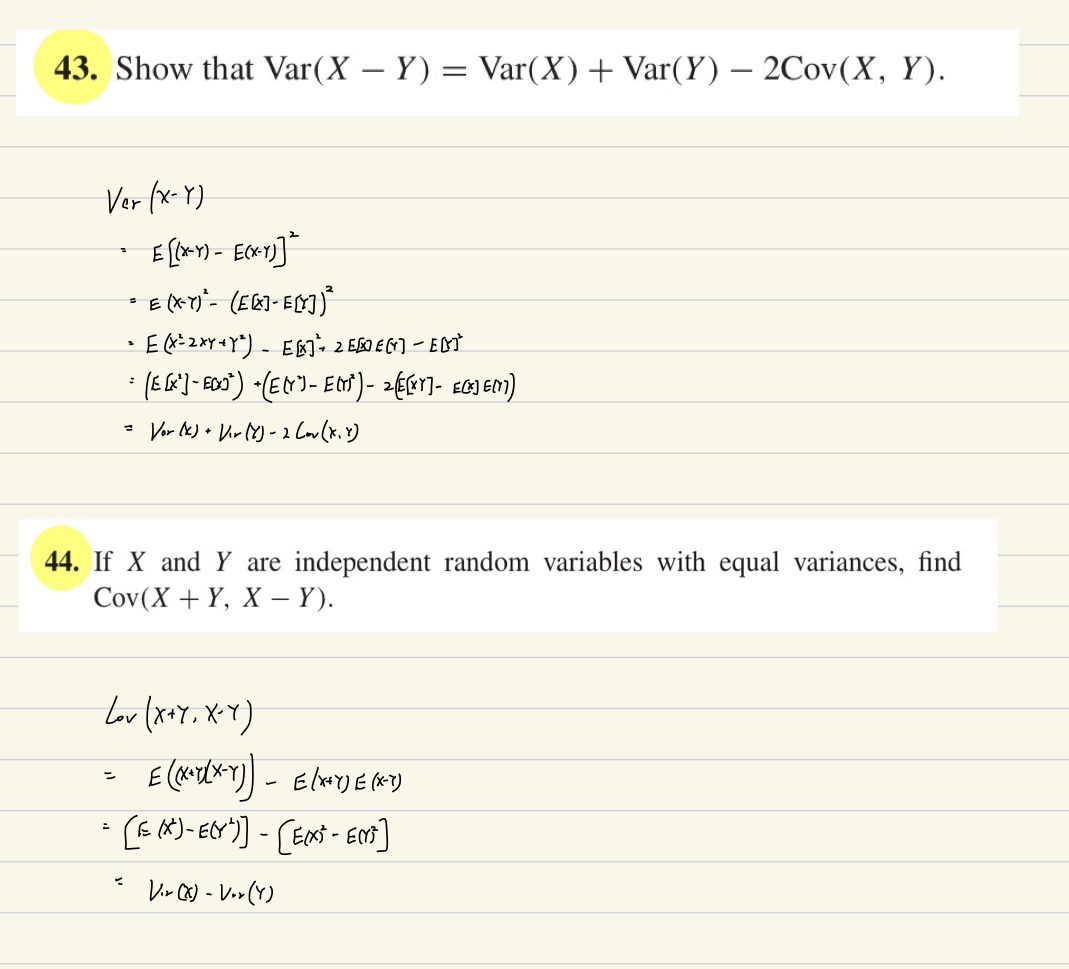 43. Show that Var(X − Y) = Var(X) + Var(Y) − 2Cov(X, Y).
Var (X-Y)
= E[(X-Y) - E(X-Y)]²
= E (X-Y)² - (E[X] - E[Y])²
= E (X² - 2XY + Y²) - E[X]² + 2E[X]E[Y] - E[Y]²
= (E[X²] - E(X)²) + (E(Y²) - E(Y)²) - 2(E[XY] - E(X)E(Y))
= Var(X) + Var(Y) - 2Cov(X,Y)
44. If X and Y are independent random variables with equal variances, find
Cov(X + Y, X − Y).
Cov (X+Y, X-Y)
= E((X+Y)(X-Y)) - E(X+Y)E(X-Y)
= [E(X²) - E(Y²)] - [E(X)² - E(Y)²]
= Var(X) - Var(Y)